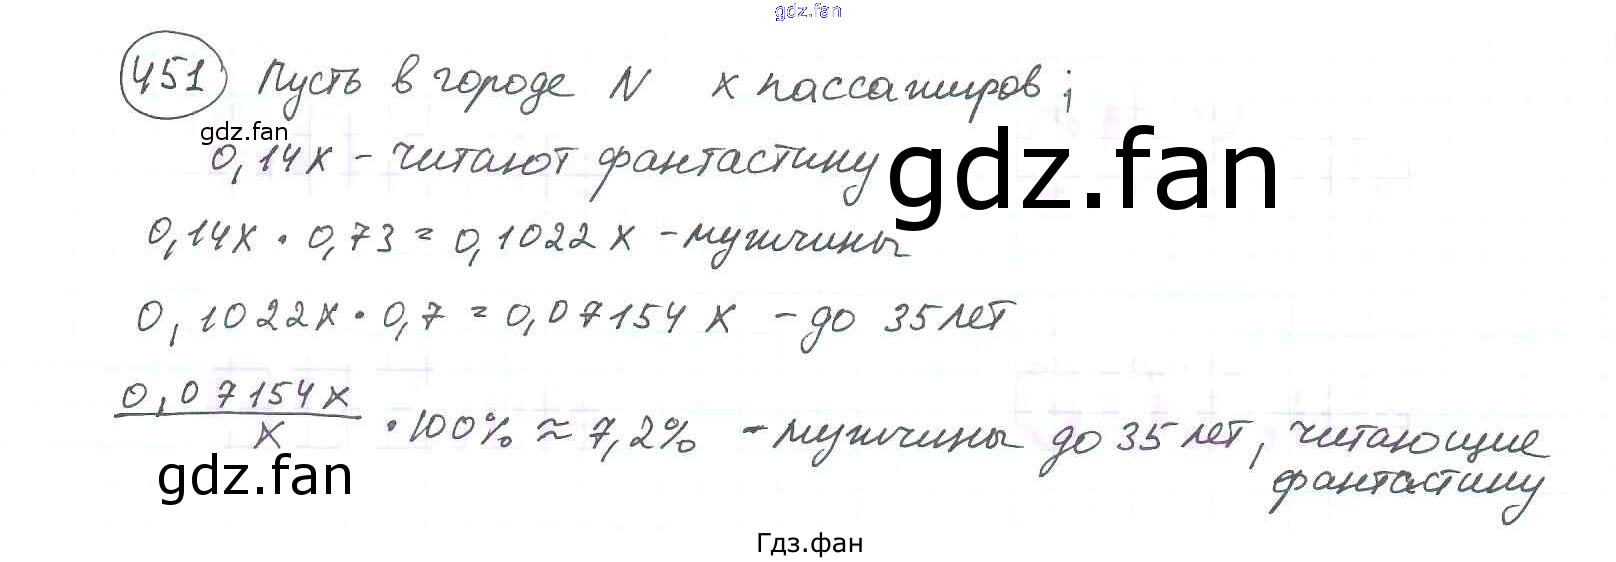 gdz.fan
451 Пусть в городе N x пассажиров;
gdz.fan
0,14x - читают фантастику
gdz.fan
0,14x · 0,73 = 0,1022x - мужчины
0,1022x · 0,7 = 0,07154x - до 35 лет
0,07154x / x · 100% ≈ 7,2% - мужчины до 35 лет, читающие
фантастику
gdz.fan
Гдз.фан